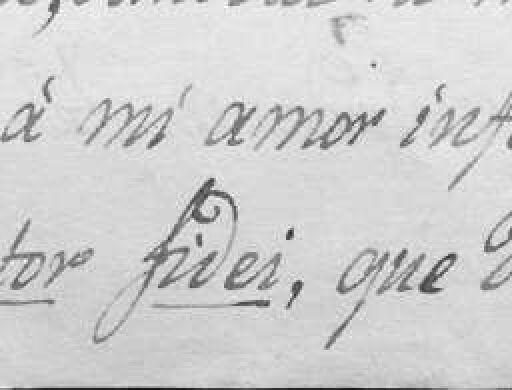 á mi amor inf
tor fidei, que